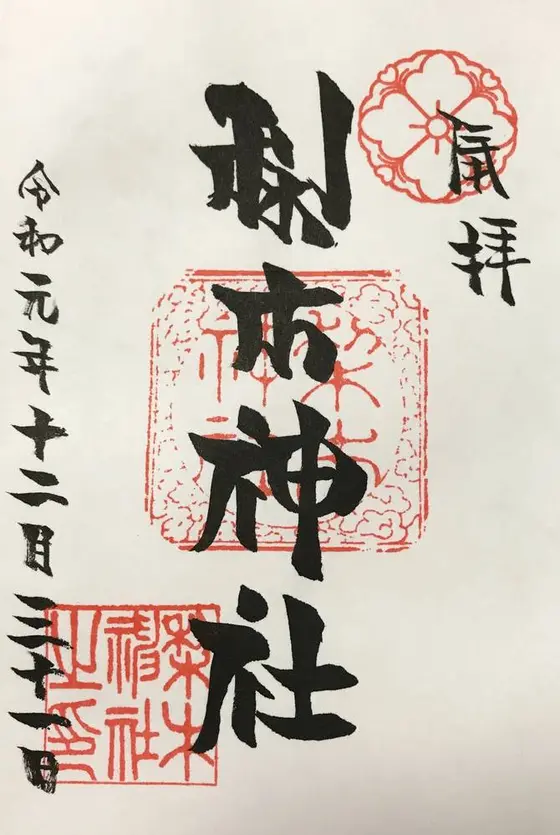 奉拝
梨木神社
梨木神社
令和元年十二月三十一日
梨木神社之印